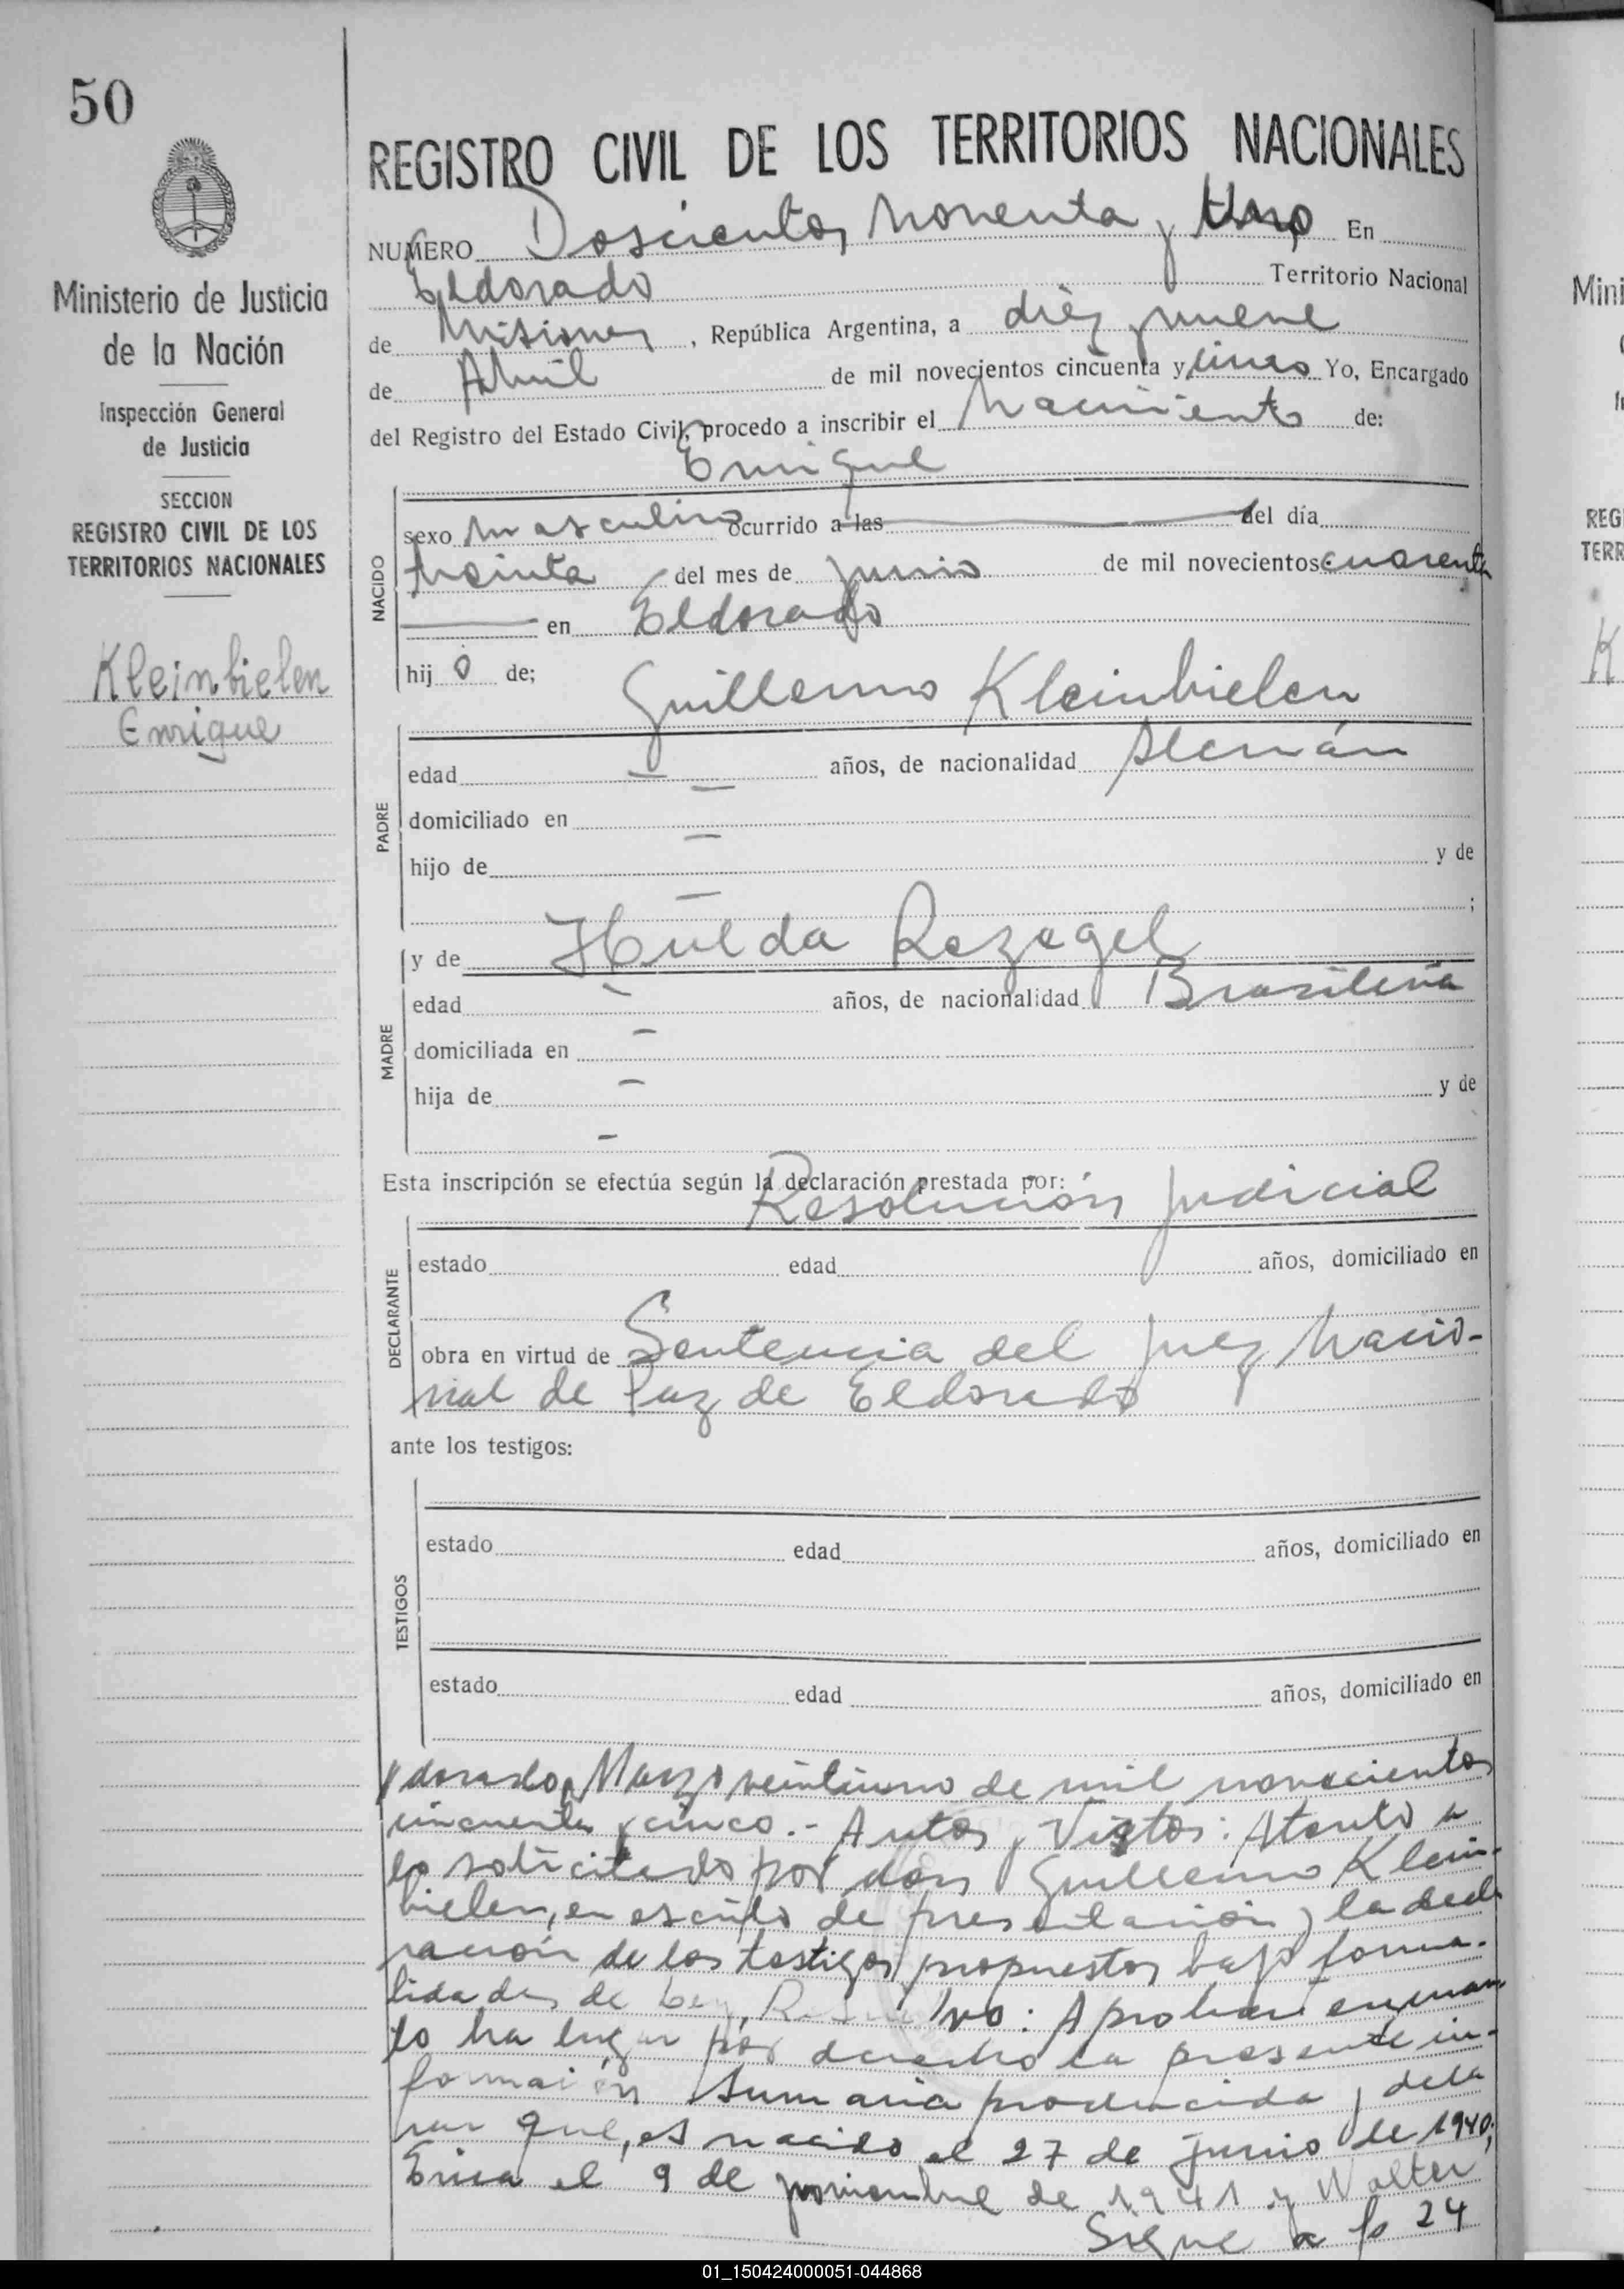 50
REGISTRO CIVIL DE LOS TERRITORIOS NACIONALES
NUMERO Doscientos Noventa y Uno En
Eldorado Territorio Nacional
de Misiones, República Argentina, a diez y nueve
de Abril de mil novecientos cincuenta y cinco Yo, Encargado
del Registro del Estado Civil, procedo a inscribir el Nacimiento de:
Enrique
Ministerio de Justicia
de la Nación
Inspección General
de Justicia
SECCION
REGISTRO CIVIL DE LOS
TERRITORIOS NACIONALES
Kleinbielen
Enrique
NACIDO
sexo masculino ocurrido a las del día
treinta del mes de junio de mil novecientos cuarenta
en Eldorado
hij o de;
Guillermo Kleinbielen
PADRE
edad — años, de nacionalidad Alemán
domiciliado en —
hijo de — y de
— ;
MADRE
y de Hulda Rezagel
edad — años, de nacionalidad Brasileña
domiciliada en —
hija de — y de
—
Esta inscripción se efectúa según la declaración prestada por:
Resolución judicial
DECLARANTE
estado edad años, domiciliado en
obra en virtud de Sentencia del Juez Nacio-
nal de Paz de Eldorado
ante los testigos:
TESTIGOS
estado edad años, domiciliado en
estado edad años, domiciliado en
ldorado, Marzo veintiuno de mil novecientos
cincuenta y cinco.- Autos y Vistos: Atento a
lo solicitado por don Guillermo Klein-
bielen, en escrito de presentación y la decla
ración de los testigos propuestos bajo forma-
lidades de Ley, Resuelvo: Aprobar en cuan
to ha lugar por derecho la presente in-
formación sumaria producida, decla
rar que, es nacido el 27 de junio de 1940;
Erica el 9 de noviembre de 1941 y Walter
Sigue a fs 24
Mini
REG
TERR
K
01_150424000051-044868